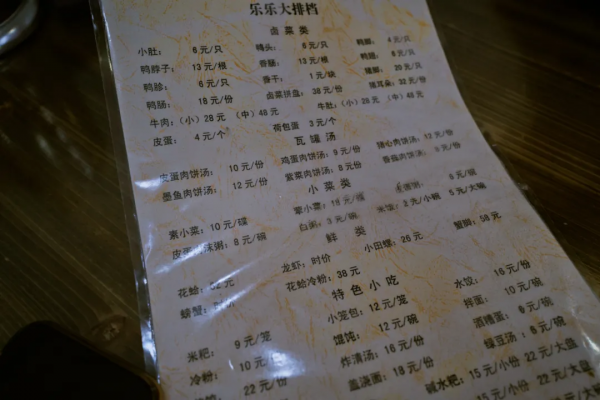 乐乐大排档
卤菜类
小肚： 6元/只 鸭头： 6元/只 鸭脚： 4元/只
鸭脖子： 13元/根 香肠： 13元/根 鸭翅： 6元/只
鸭胗： 6元/只 香干： 1元/块 猪脚： 20元/只
鸭肠： 18元/份 卤菜拼盘： 38元/份 猪耳朵： 32元/份
牛肉：（小）28元 （中）48元 牛肚：（小）28元 （中）48元
皮蛋： 4元/个 荷包蛋 3元/个
瓦罐汤
皮蛋肉饼汤： 10元/份 鸡蛋肉饼汤：9元/份 随心肉饼汤：12元/份
墨鱼肉饼汤： 12元/份 紫菜肉饼汤：8元/份 香菇肉饼汤： 9元/份
小菜类
素小菜：10元/碟 荤小菜：18元/碟
皮蛋 粥：8元/碗 白粥：3元/碗 水饺：3元/小碗 5元/大碗
鲜 类
花蛤： 龙虾：时价 小田螺：26元 蟹脚：58元
螃蟹： 花蛤冷粉：38元
特色小吃
米粑： 9元/笼 小笼包：12元/笼 水饺： 16元/份
冷粉： 10元/ 馄饨： 12元/碗 拌面： 10元/碗
22元/份 炸清汤：16元/份 酒糟蛋： 6元/碗
盖浇面：18元/份 绿豆汤： 6元/碗
碱水粑：15元/小份 22元/大盘
15元/小份 22元/大